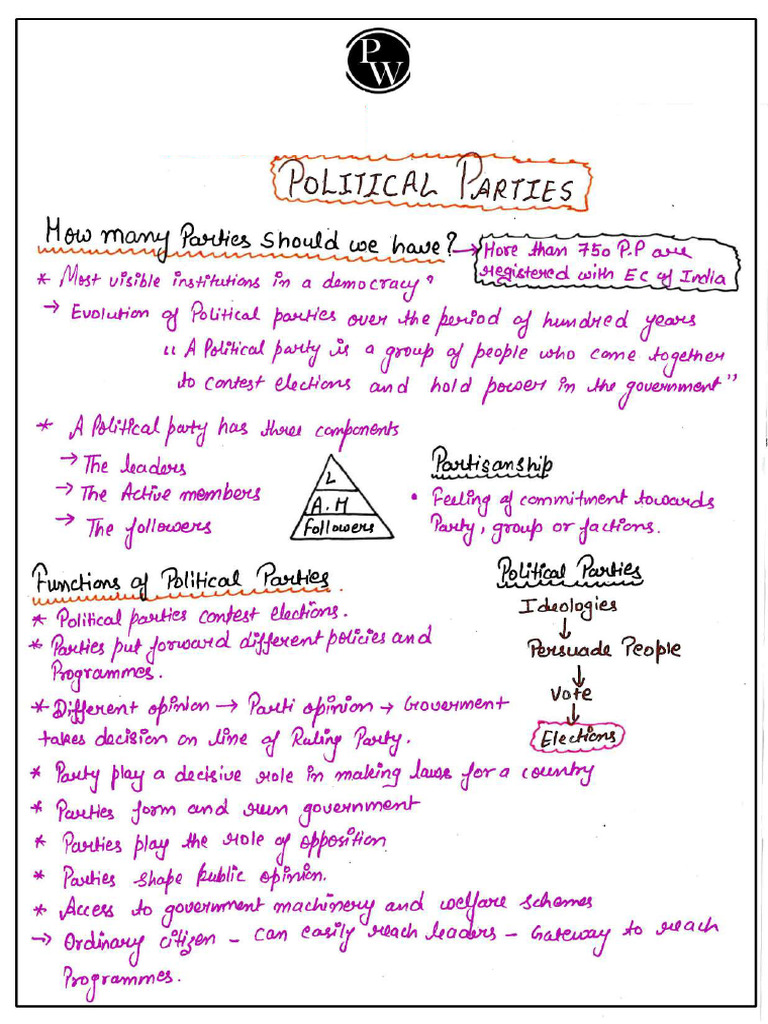 PW
POLITICAL PARTIES
How many Parties should we have? → More than 750 P.P are
registered with EC of India
* Most visible institutions in a democracy?
→ Evolution of Political parties over the period of hundred years
" A Political party is a group of people who come together
to contest elections and hold power in the government"
* A Political party has three components
→ The leaders
→ The Active members
→ The followers
L
A.M
Followers
Partisanship
• Feeling of commitment towards
Party, group or factions.
Functions of Political Parties
* Political parties contest elections.
* Parties put forward different policies and
Programmes.
* Different opinion → Parti opinion → Government
takes decision on line of Ruling Party.
Political Parties
Ideologies
↓
Persuade People
↓
Vote
↓
Elections
* Party play a decisive role in making laws for a country
* Parties form and run government
* Parties play the role of opposition
* Parties shape public opinion.
* Access to government machinery and welfare schemes
→ Ordinary citizen - can easily reach leaders - Gateway to reach
Programmes.